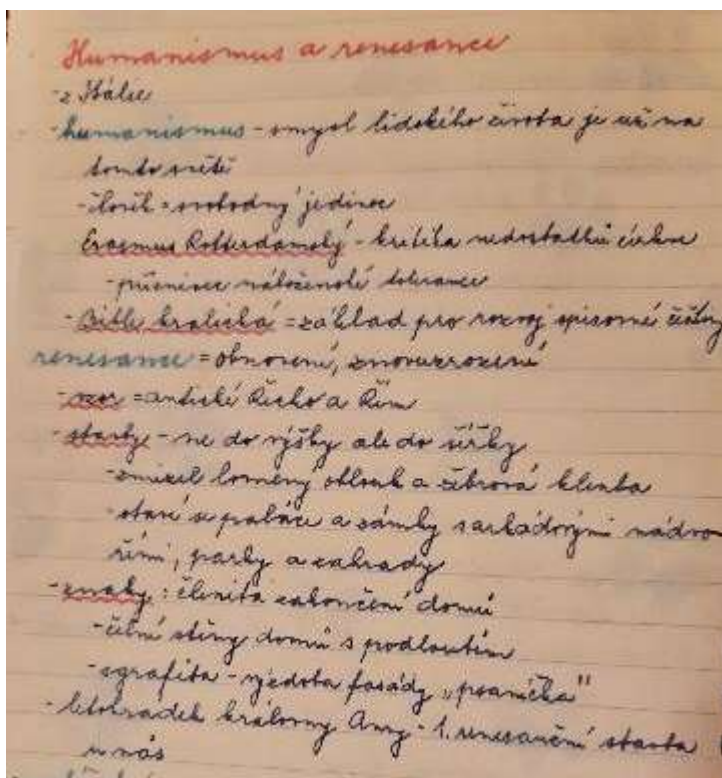 Humanismus a renesance
- z Itálie
- humanismus - smysl lidského života je už na
tomto světě
- člověk = svobodný jedinec
Erasmus Rotterdamský - kritika nedostatků církve
- příznivec náboženské tolerance
- Bible kralická = základ pro rozvoj spisovné češtiny
renesance = obnovení, znovuzrození
- vzor = antické Řecko a Řím
- stavby - ne do výšky ale do šířky
- zmizel lomený oblouk a žebrová klenba
- staví se paláce a zámky s arkádovými nádvo
řími, parky a zahrady
- znaky: členitá zakončení domů
- čelní stěny domů s podloubím
- sgrafita - výzdoba fasády „psaníčka"
- letohrádek královny Anny - 1. renesanční stavba
u nás